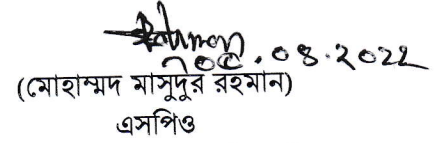 ০৫.০৪.২০২২
(মোহাম্মদ মাসুদুর রহমান)
এসপিও